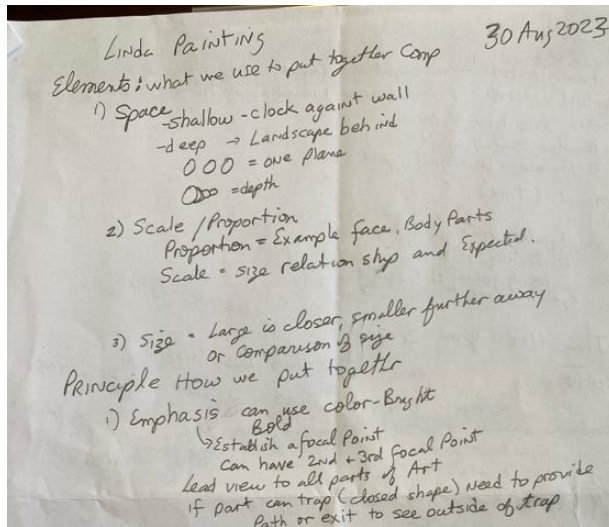 Linda Painting 30 Aug 2023
Elements: what we use to put together Comp
1) Space
-shallow - clock against wall
-deep → Landscape behind
OOO = one plane
OOO = depth
2) Scale / Proportion
Proportion = Example face, Body Parts
Scale = size relation ship and Expected.
3) Size = Large is closer, smaller further away
or comparison of size
PRINciple How we put togethr
1) Emphasis can use color-Bright
Bold
→ Establish a focal Point
Can have 2nd + 3rd focal Point
Lead view to all parts of Art
if part can trap (closed shape) need to provide
Path or exit to see outside of trap